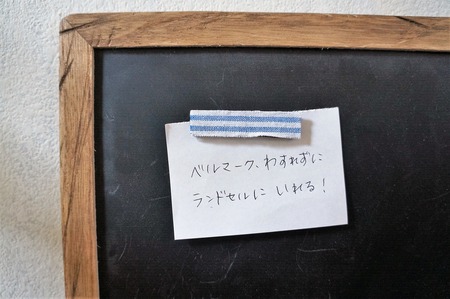 ベルマーク、わすれずに
ランドセルに いれる!